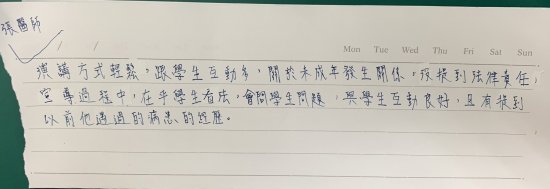 張醫師
Mon Tue Wed Thu Fri Sat Sun
演講方式輕鬆,跟學生互動多,關於未成年發生關係,沒提到法律責任,
宣導過程中,在乎學生看法,會問學生問題,與學生互動良好,且有提到
以前他遇過的病患的經歷。